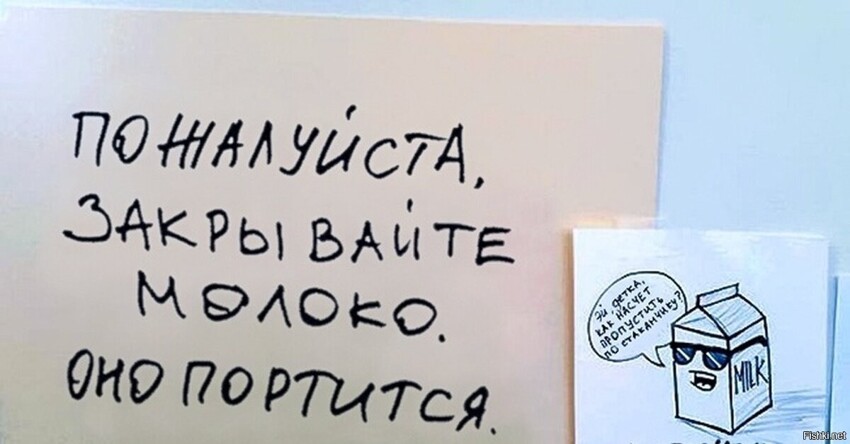 ПОЖАЛУЙСТА,
ЗАКРЫВАЙТЕ
МОЛОКО.
ОНО ПОРТИТСЯ.
ЭЙ, ДЕТКА,
КАК НАСЧЕТ
ПРОПУСТИТЬ
ПО СТАКАНЧИКУ?
MILK
Fishki.net